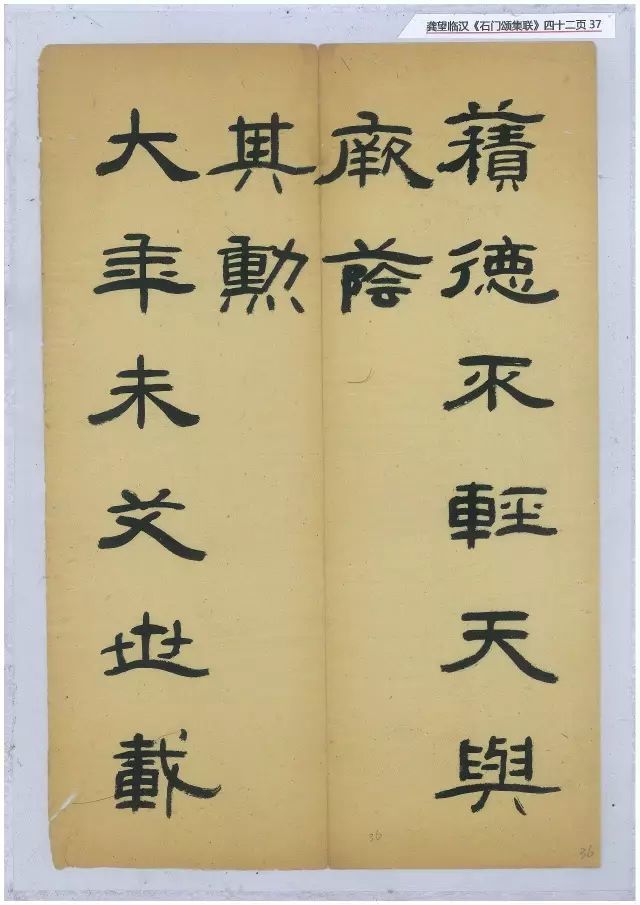 龚望临汉《石门颂集联》四十二页 37
蕵德不輕天與
厥蔭
大年未艾世載
其勳
36
36